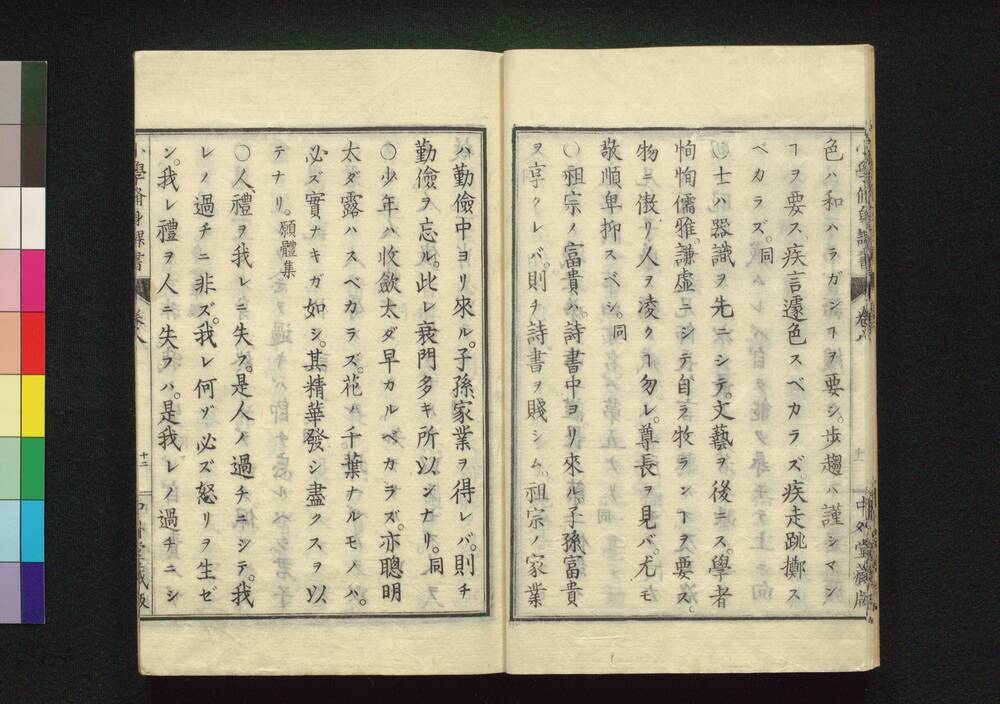 色ハ和ハラガンヿヲ要シ。歩趨ハ謹シマン
ヿヲ要ス、疾言遽色スベカラズ。疾走跳擲ス
ベカラズ。同
士ハ器識ヲ先ニシテ。文藝ヲ後ニス。學者
恂恂儒雅。謙虛ニシテ自ラ牧ランヿヲ要ス。
物ニ傲リ人ヲ凌クヿ勿レ。尊長ヲ見バ。尤モ
敬順卑抑スベシ。同
〇祖宗ノ富貴ハ。詩書中ヨリ來ル。子孫富貴
ヲ享クレバ。則チ詩書ヲ賤シム。祖宗ノ家業
ハ勤儉中ヨリ來ル。子孫家業ヲ得レバ。則チ
勤儉ヲ忘ル。此レ衰門多キ所以ンナリ。同
〇少年ハ收斂太ダ早カルベカラズ。亦聰明
太ダ露ハスベカラズ。花ハ千葉ナルモノハ。
必ズ實ナキガ如シ。其精華發シ盡クスヲ以
テナリ。願體集
〇人、禮ヲ我レニ失フ。是人ノ過チニシテ。我
レノ過チニ非ズ。我レ何ゾ必ズ怒リヲ生ゼ
ン。我レ禮ヲ人ニ失フハ。是我レノ過チニシ
小學脩身課書 卷八 十二 中外堂藏版